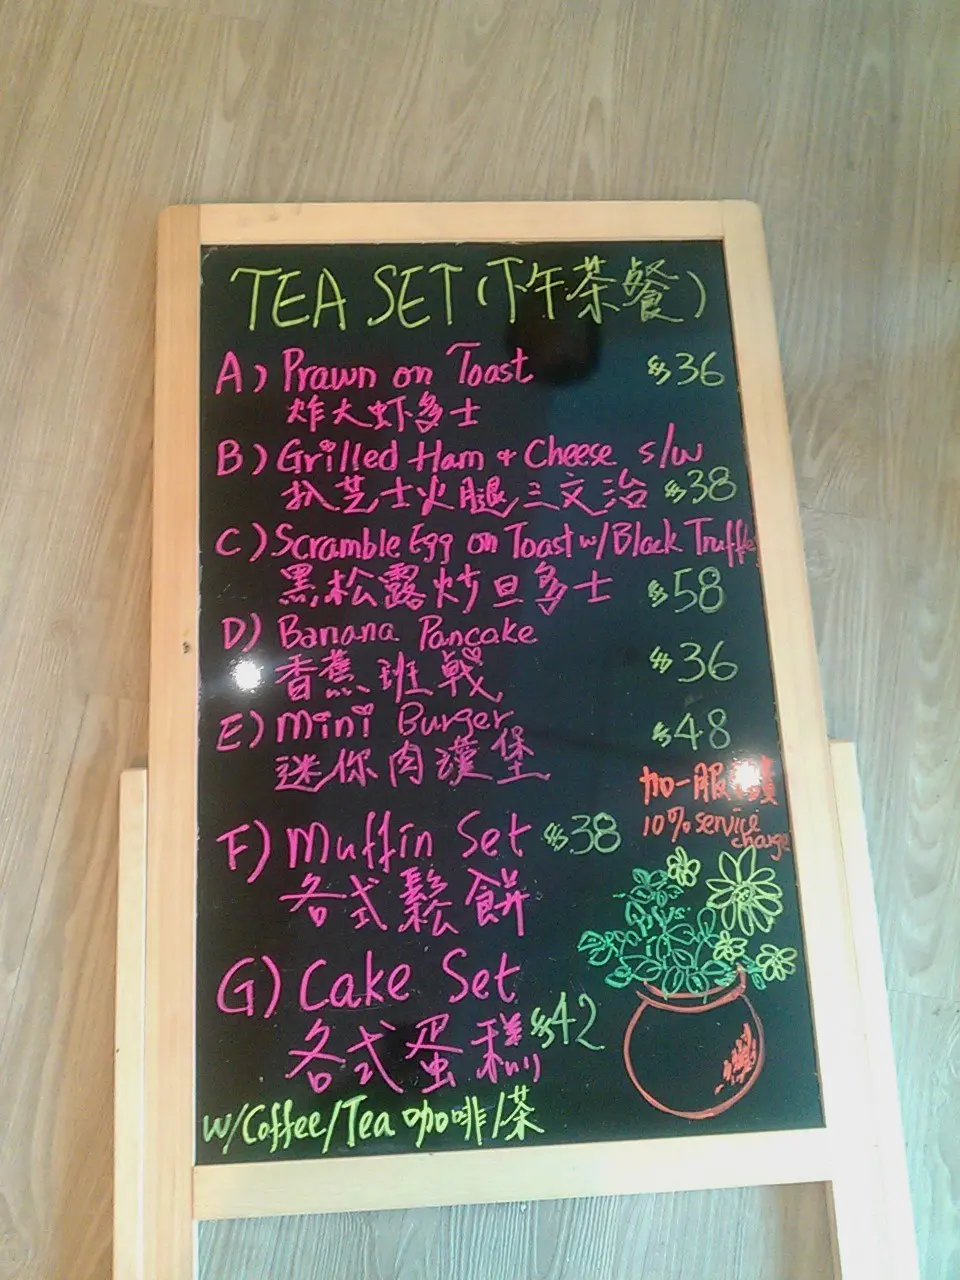 TEA SET (下午茶餐)
A) Prawn on Toast $36
炸大虾多士
B) Grilled Ham + Cheese s/w
扒芝士火腿三文治 $38
C) Scramble Egg on Toast w/ Black Truffle
黑松露炒旦多士 $58
D) Banana Pancake
香蕉班戟 $36
E) Mini Burger $48
迷你肉漢堡
加一服務費
10% service
charge
F) Muffin Set $38
各式鬆餅
G) Cake Set
各式蛋糕 $42
w/Coffee/Tea 咖啡/茶